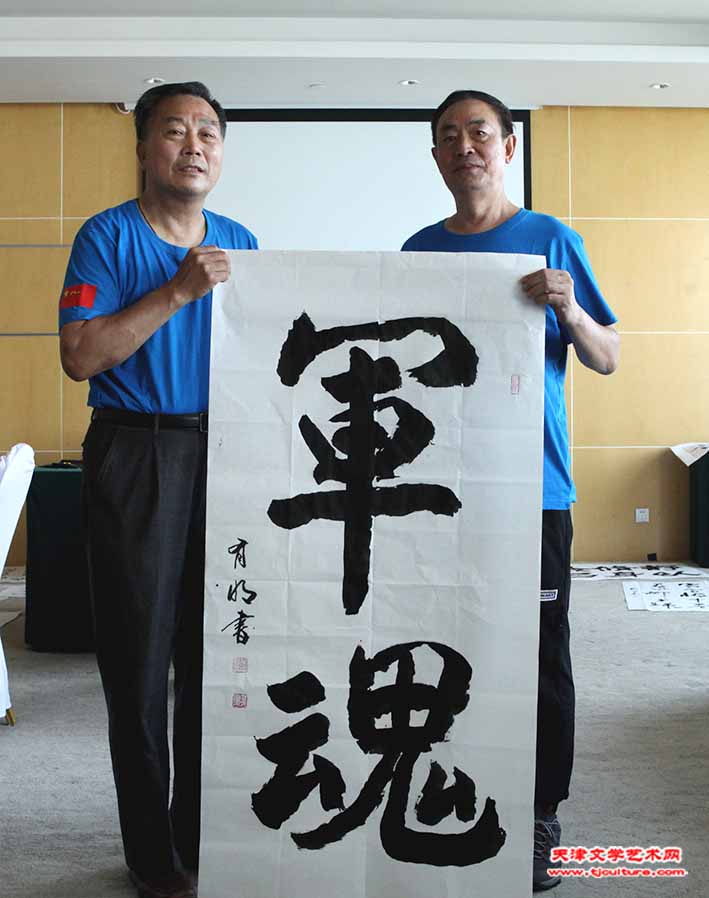 軍魂
有明書
天津文学艺术网
www.tjculture.com